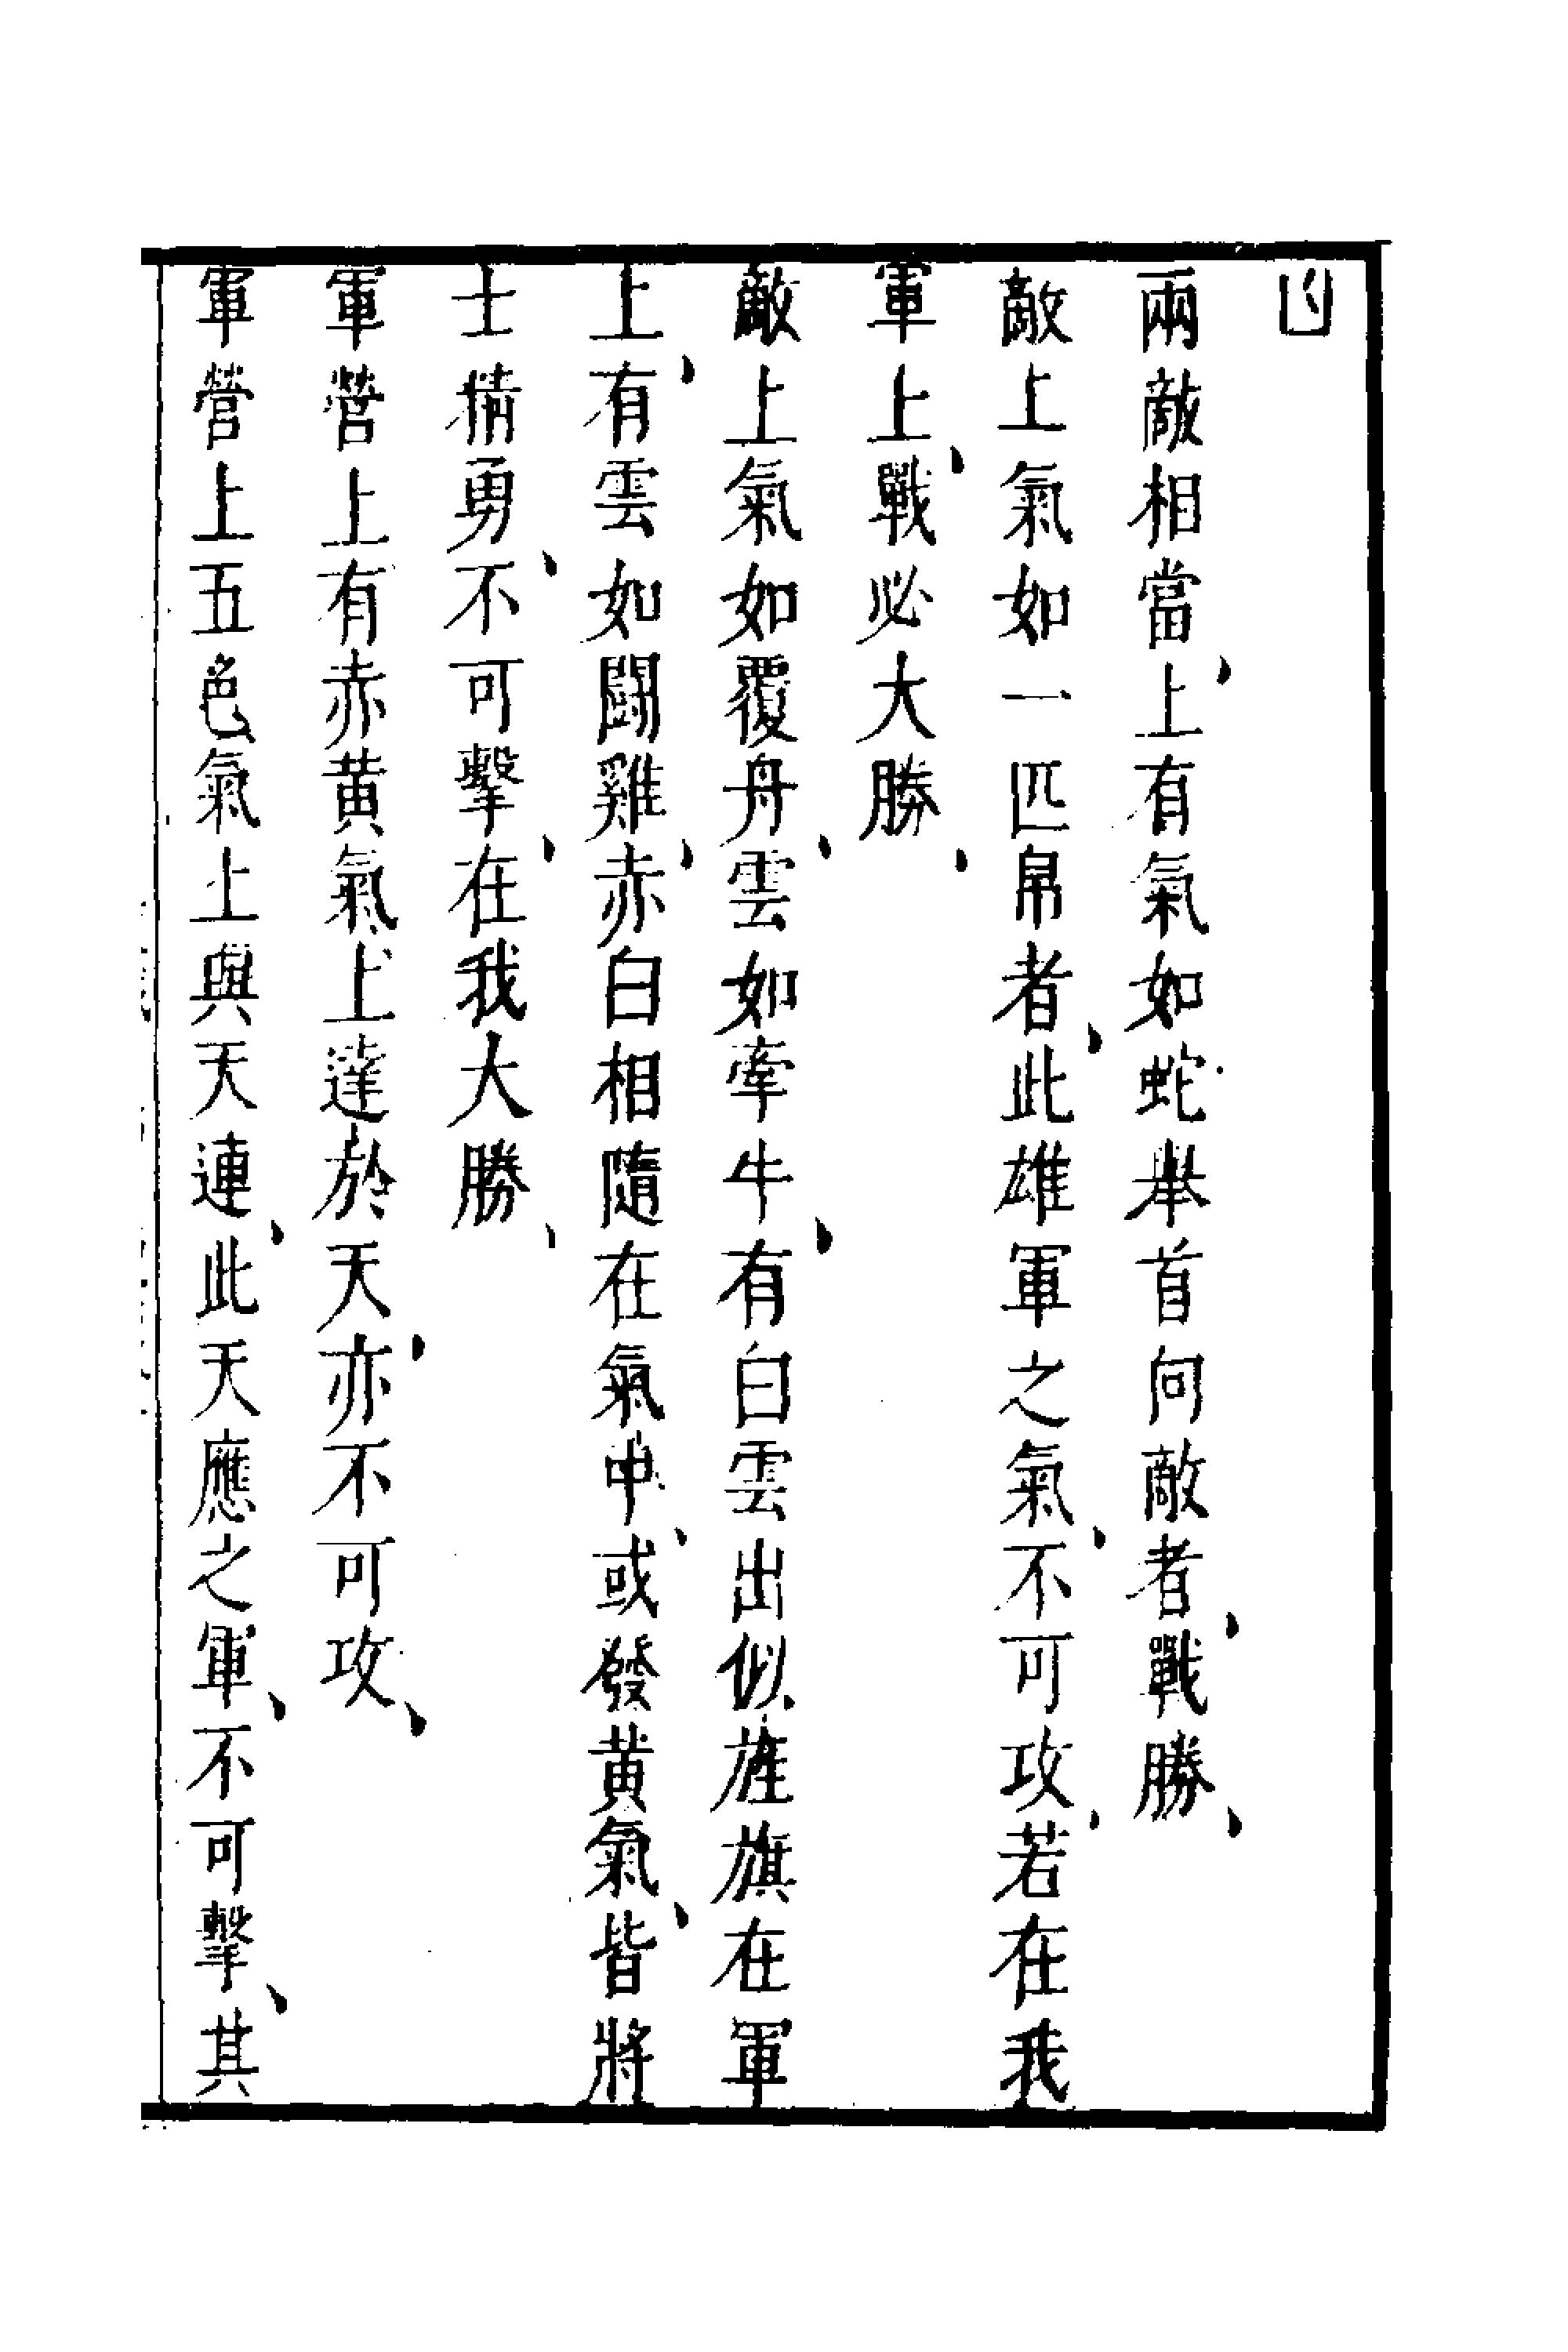 凶
兩敵相當、上有氣如蛇舉首向敵者、戰勝、
敵上氣如一匹帛者、此雄軍之氣、不可攻、若在我
軍上、戰必大勝、
敵上氣如覆舟、雲如牽牛、有白雲出似旌旗在軍
上、有雲如鬪雞、赤白相隨在氣中、或發黄氣、皆將
士精勇、不可擊、在我大勝、
軍營上有赤黄氣上達於天、亦不可攻、
軍營上五色氣上與天連、此天應之軍、不可擊、其